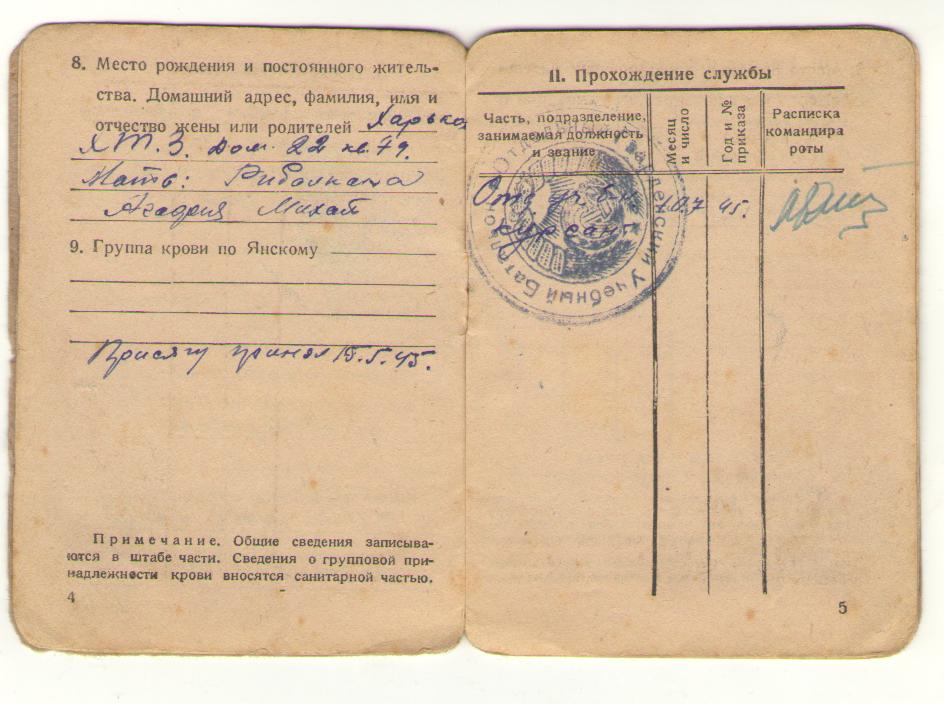 8. Место рождения и постоянного житель-
ства. Домашний адрес, фамилия, имя и
отчество жены или родителей Харьков
ХТ.З. дом. 22 кв. 79.
Мать:
Михай
9. Группа крови по Янскому
Присягу принял 15.5.45.
Примечание. Общие сведения записыва-
ются в штабе части. Сведения о групповой при-
надлежности крови вносятся санитарной частью.
4
II. Прохождение службы
Часть, подразделение,
занимаемая должность
и звание
Месяц
и число
Год и №
приказа
Расписка
командира
роты
Отд уч. б-н
45.
курсант
Отдельный Гвардейский Учебный Батальон
5